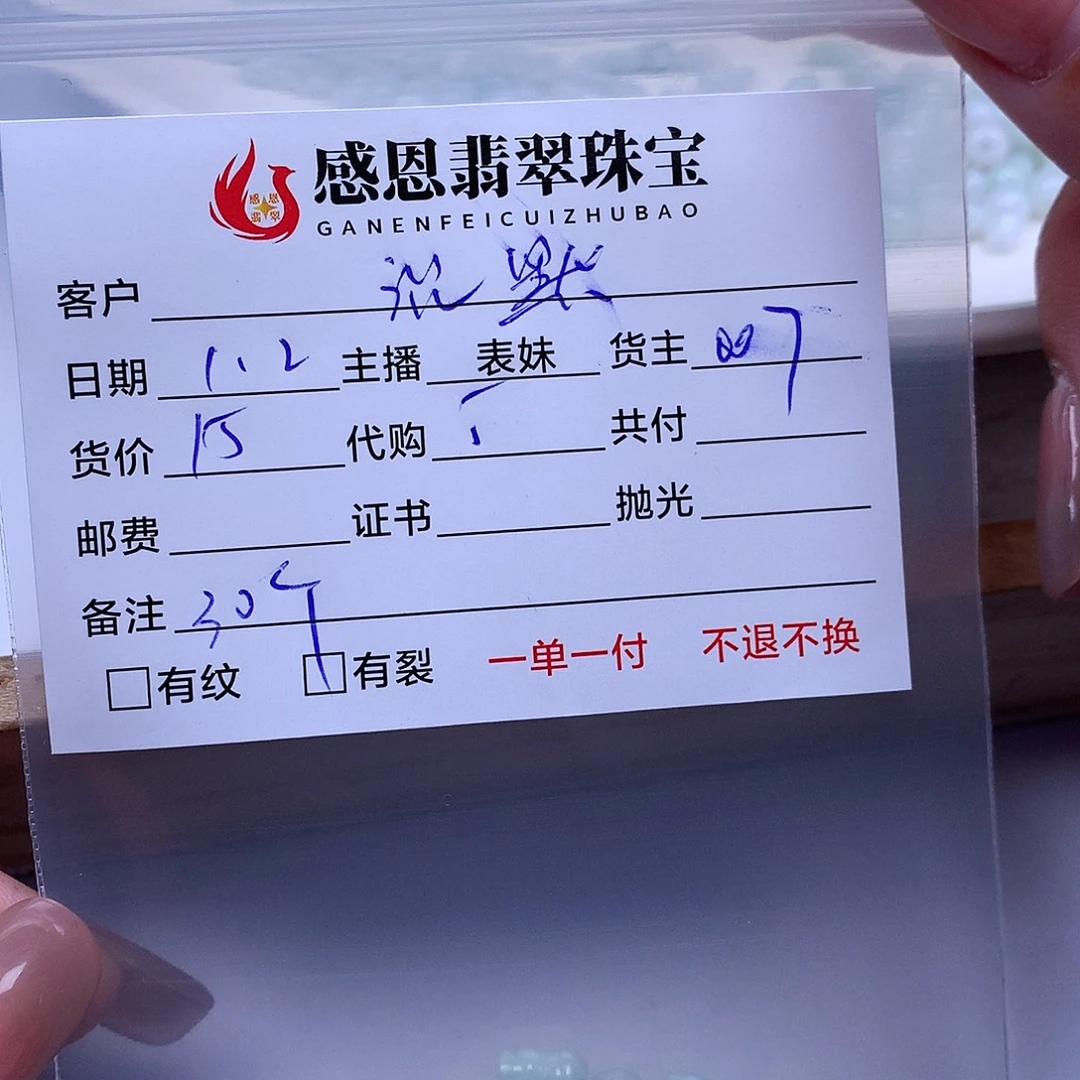 感恩翡翠珠宝
GANENFEICUIZHUBAO
感恩翡翠
客户 沉默
日期 1.2 主播 表妹 货主 007
货价 15 代购 共付
邮费 证书 抛光
备注 30个
□有纹 □有裂 一单一付 不退不换